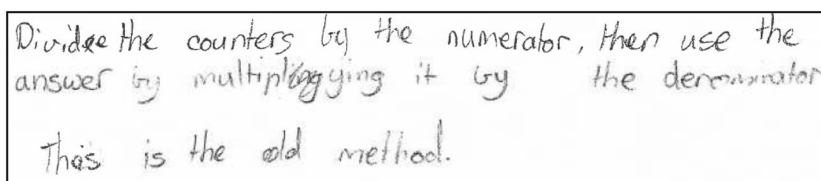 Dividee the counters by the numerator, then use the
answer by multiplying it by the denominator
This is the old method.